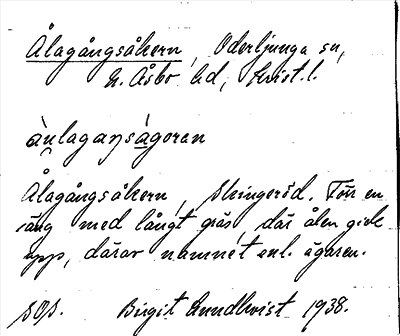 Ålagångsåkern, Oderljunga sn,
N. Åsbo hd, Krist. l.
ànlaganságoran
Ålagångsåkern, Slingeröd. Förr en
äng med långt gräs, där ålen gick
upp, därav namnet enl. ägaren.
SOS. Birgit Lundkvist 1938.